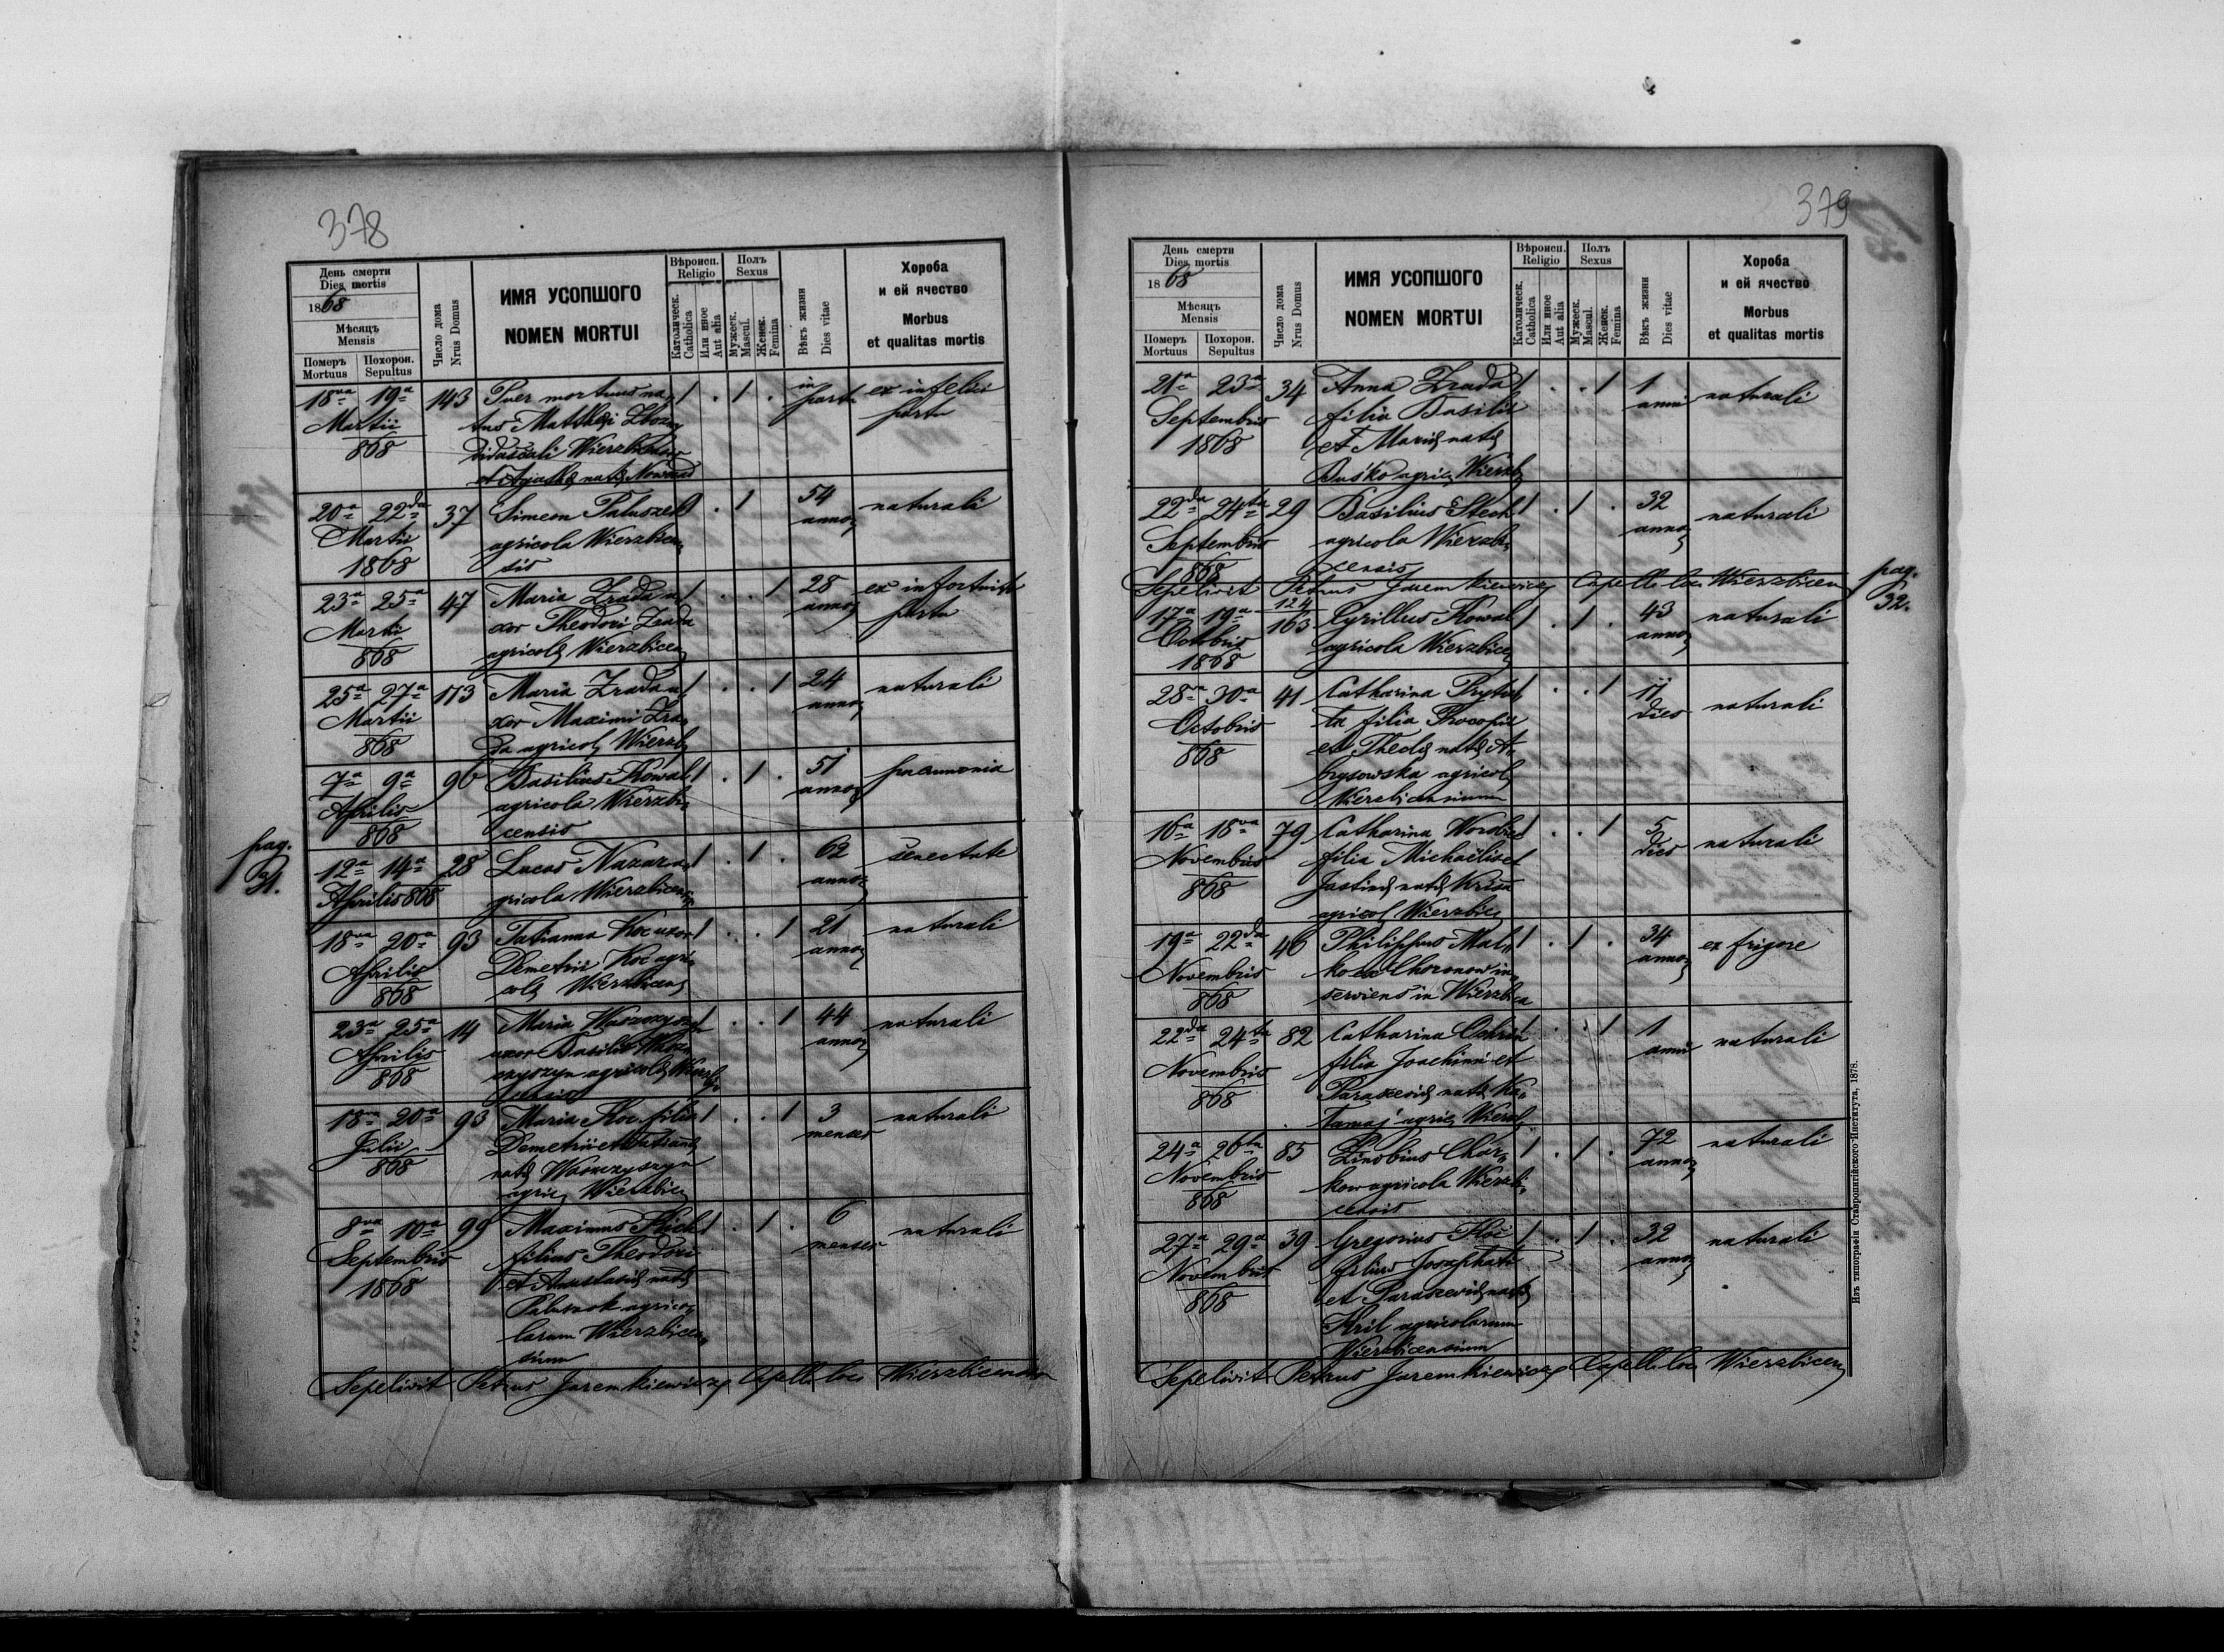 378
День смерти
Dies mortis
1868
Мѣсяцъ
Mensis
Померъ
Mortuus
Похорон.
Sepultus
Число дома
Nrus Domus
ИМЯ УСОПШОГО
NOMEN MORTUI
Вѣроисп.
Religio
Католическ.
Catholica
Или иное
Aut alia
Полъ
Sexus
Мужеск.
Mascul.
Женск.
Femina
Вѣкъ жизни
Dies vitae
Хороба
и ей ячество
Morbus
et qualitas mortis
18va 19a 143 Puer mortuus na, 1 . 1 . in ex infelici
Martii tus Matthaei partu partu
868 didascali Wierzbicensis
et Agathae natae
20a 22da 37 Simeon Paluszek 1 . 1 54 naturali
Martii agricola Wierzbicen, anno
1868 sis
23a 25a 47 Maria Zrada u, 1 . . 1 28 ex infortunato
Martii xor Theodori Zrada anno partu
868 agricolae Wierzbicen
25a 27a 173 Maria Zrada u, 1 . . 1 24 naturali
Martii xor Maximi Zra, anno
868 da agricol Wierzb
7a 9a 96 Basilius Kowal 1 . 1 . 51 pneumonia
Aprilis agricola Wierzbi, anno
868 censis
pag.
31.
12a 14a 28 Lucas Nazar a, 1 . 1 . 62 senectute
Aprilis 868 gricola Wierzbicensis anno
18va 20a 93 Tatianna Koc uxor 1 . . 1 21 naturali
Aprilis Demetrii Koc agri, anno
868 colae Wierzbicens
23a 25a 14 Maria 1 . . 1 44 naturali
Aprilis uxor Basilii anno
868 agricolae
18va 20a 93 Maria Koc filia 1 . . 1 3 naturali
Julii Demetrii et Tatiannae menses
868 natae Waszczyszyn
agric Wierzbic
8va 10a 99 Maximus 1 . 1 . 6 naturali
Septembris filius Theodori menses
1868 et Anastasiae natae
Paluszok agrico,
larum Wierzbicen,
sium
Sepelivit Petrus Jaremkiewicz Capell. loc. Wierzbicensis
379
День смерти
Dies mortis
1868
Мѣсяцъ
Mensis
Померъ
Mortuus
Похорон.
Sepultus
Число дома
Nrus Domus
ИМЯ УСОПШОГО
NOMEN MORTUI
Вѣроисп.
Religio
Католическ.
Catholica
Или иное
Aut alia
Полъ
Sexus
Мужеск.
Mascul.
Женск.
Femina
Вѣкъ жизни
Dies vitae
Хороба
и ей ячество
Morbus
et qualitas mortis
21a 23a 34 Anna Zrada 1 . . 1 1 naturali
Septembris filia Basilii anni
1868 et Mariae natae
Buśko agric Wierzb
22da 24ta 29 Basilius Stech 1 . 1 . 32 naturali
Septembris agricola Wierzbi, anno
868 censis
Sepelivit Petrus Jaremkiewicz Capell. loc. Wierzbicen
pag.
32.
17a 19a 124 163 Cyrillus Kowal 1 . 1 . 43 naturali
Octobris agricola Wierzbicen anno
1868
28va 30a 41 Catharina 1 . . 1 11 naturali
Octobris ta filia Procopii dies
868 et Theclae natae A,
agricol
Wierzbicensium
16a 18va 79 Catharina 1 . . 1 5 naturali
Novembris filia Michaëlis et dies
868 Justinae natae
agricol Wierzbic
19a 22da 46 Philippus Mal, 1 . 1 . 34 ex frigore
Novembris ko ex Choronow in, anno
868 serviens in Wierzbica
22da 24ta 82 Catharina 1 . . 1 1 naturali
Novembris filia Joachimi et anni
868 Parasceviae natae Ka,
tamaj agric Wierzb
24a 26ta 85 Zinobius Chor, 1 . 1 . 72 naturali
Novembris kow agricola Wierzbi, anno
868 censis
27a 29a 39 Gregorius 1 . 1 . 32 naturali
Novembris filius Josephati anno
868 et Parasceviae natae
Kril agricolarum
Wierzbicensium
Sepelivit Petrus Jaremkiewicz Capell. loc. Wierzbicen
Изъ типографіи Ставропигійского Института, 1878.